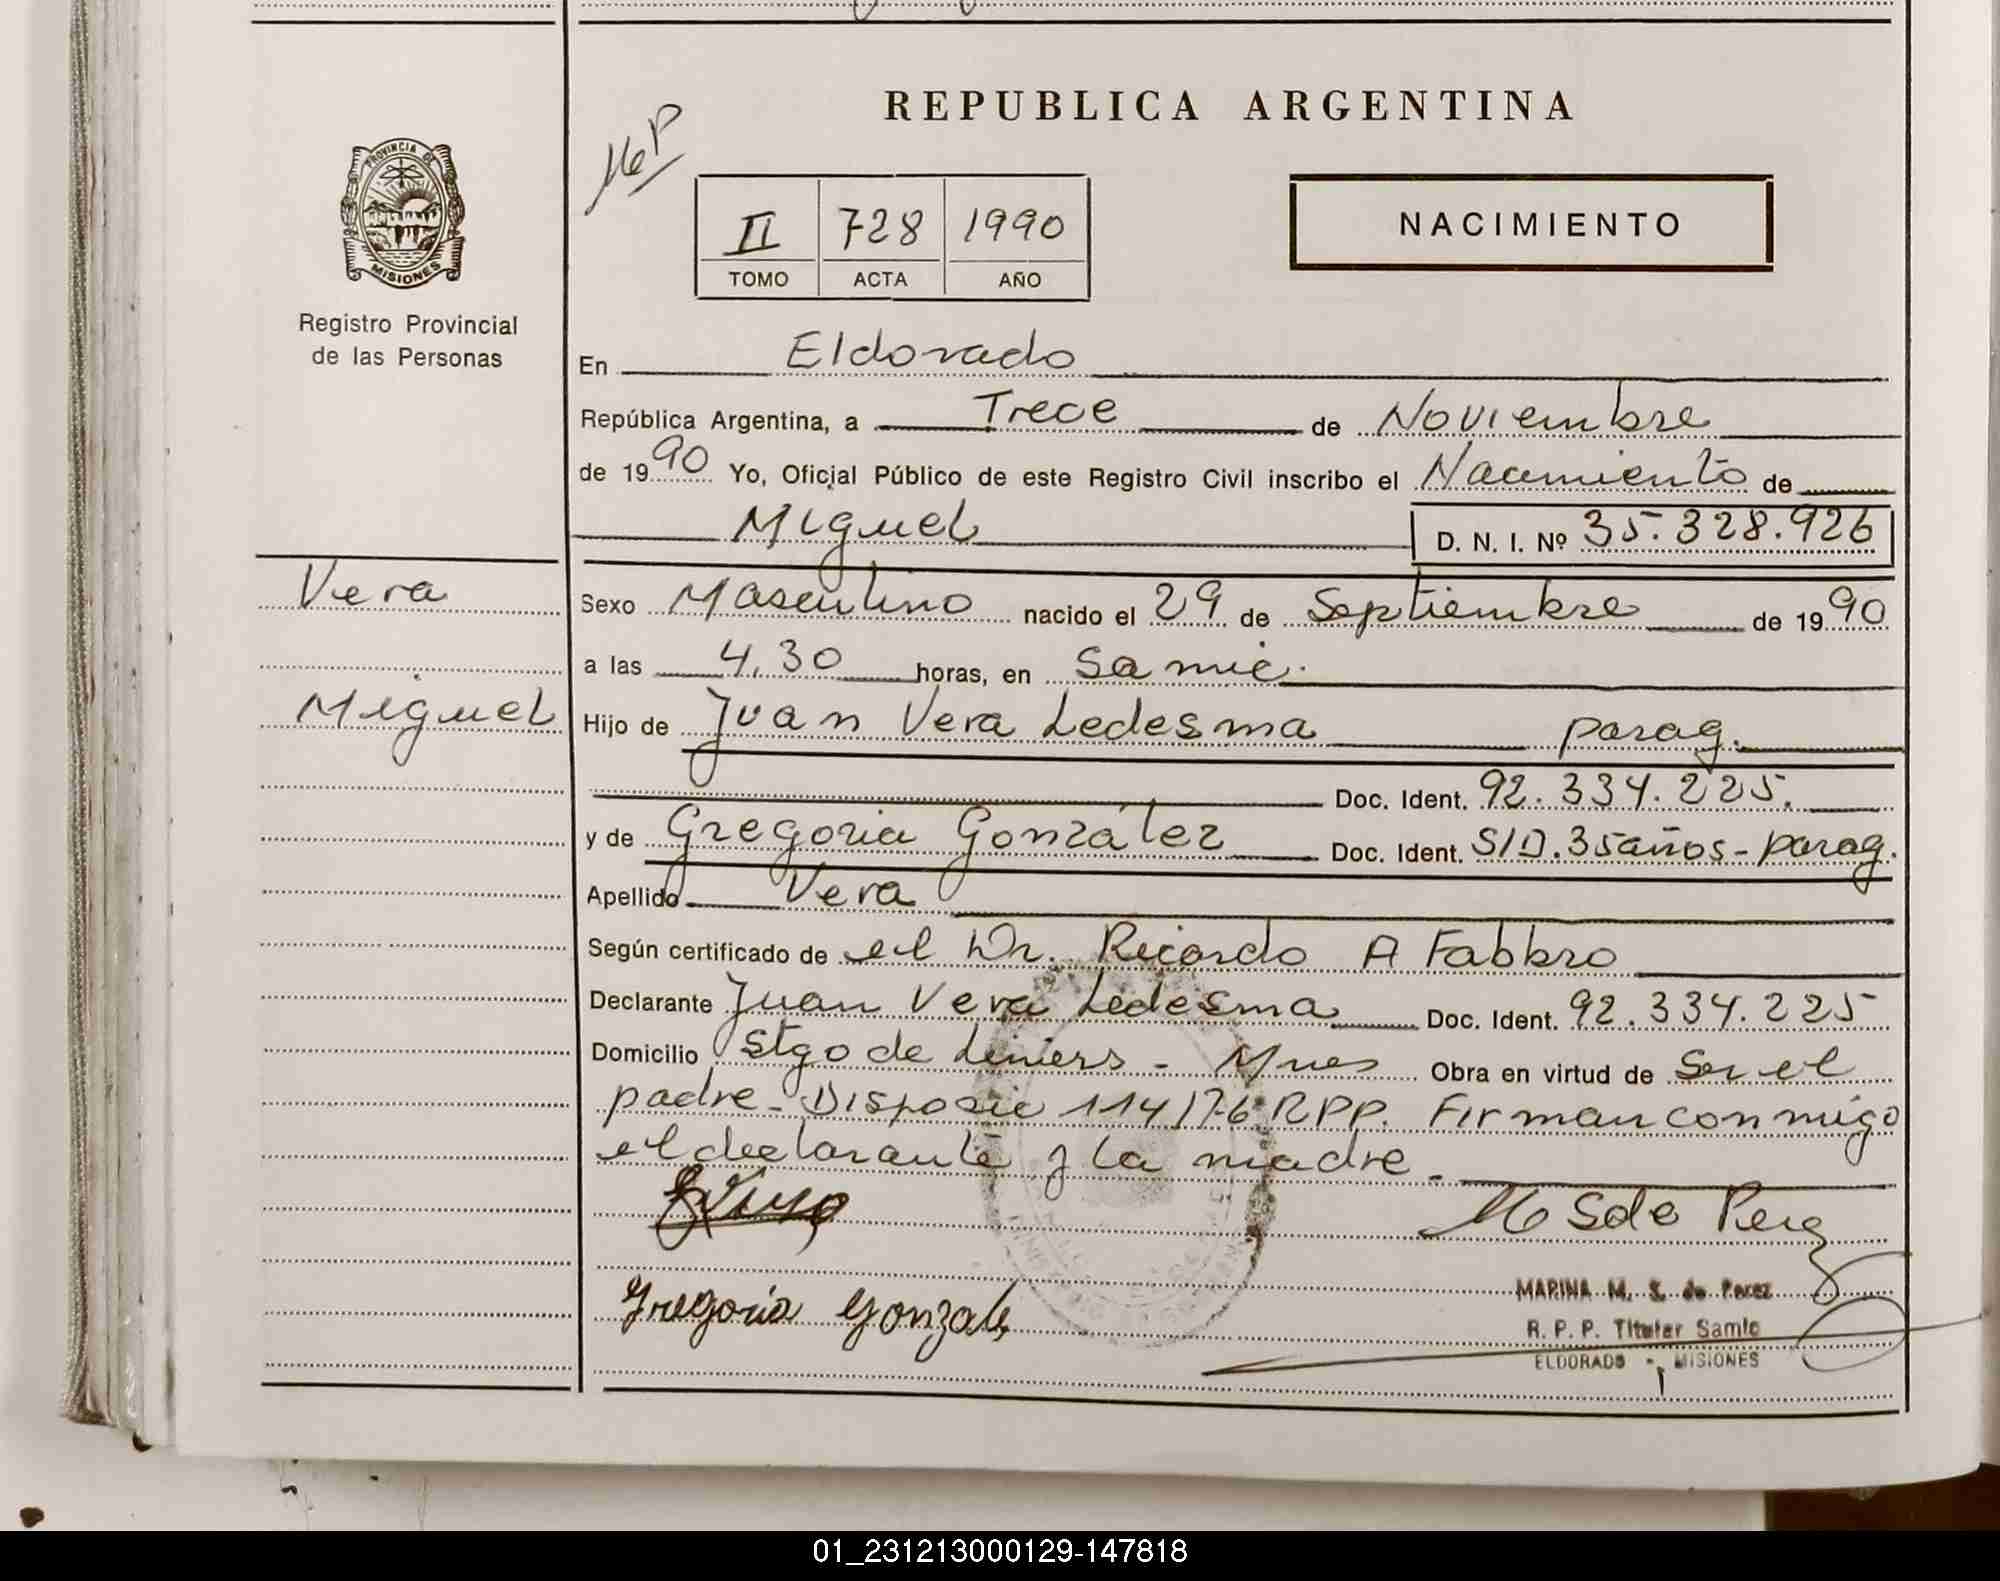 REPUBLICA ARGENTINA
PROVINCIA DE
MISIONES
Registro Provincial
de las Personas
II 728 1990
TOMO ACTA AÑO
NACIMIENTO
En Eldorado
República Argentina, a Trece de Noviembre
de 1990 Yo, Oficial Público de este Registro Civil inscribo el Nacimiento de
Miguel D. N. I. Nº 35.328.926
Vera
Miguel
Sexo Masculino nacido el 29 de Septiembre de 1990
a las 4,30 horas, en Samic.
Hijo de Juan Vera Ledesma parag.
Doc. Ident. 92.334.225.
y de Gregoria González Doc. Ident. S/D.35años-parag.
Apellido Vera
Según certificado de el Dr. Ricardo A Fabbro
Declarante Juan Vera Ledesma Doc. Ident. 92.334.225
Domicilio Stgo de Liniers - Mnes Obra en virtud de Ser el
padre - Disposic 114/76 RPP. Firman conmigo
el declarante y la madre.
M S de Perez
Gregoria Gonzalez
MARINA M. S. de Perez
R. P. P. Titular Samic
ELDORADO - MISIONES
01_231213000129-147818